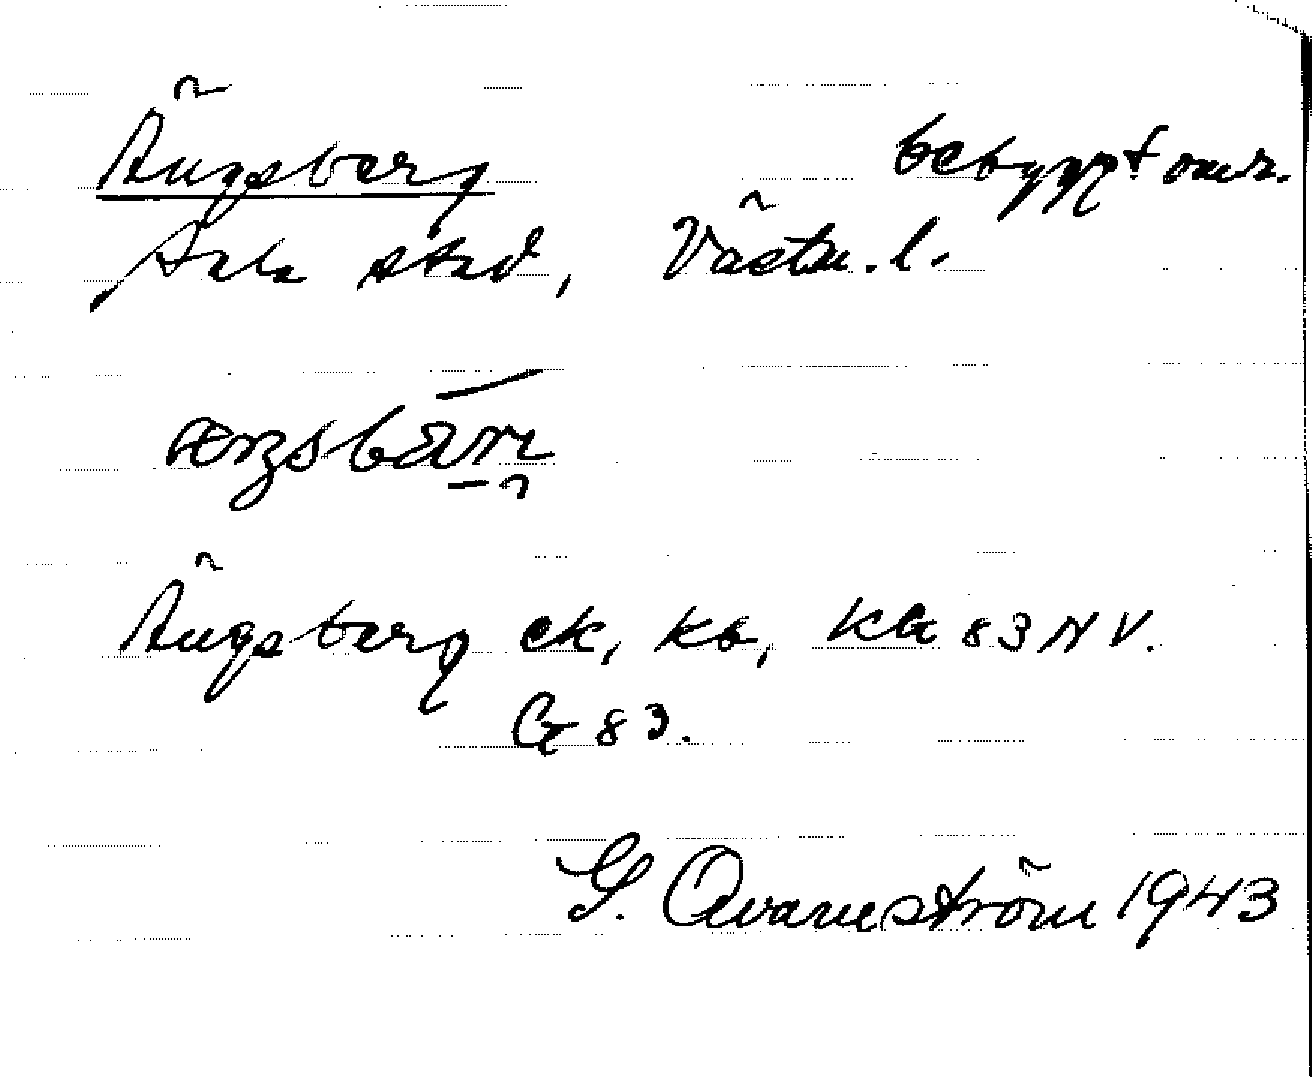 Ängsberg bebyggt omr.
Sala stad, Västm. l.
æŋsbærı
Ängsberg ek, kb, KBl 83 NV.
G 83.
G. Qvarnström 1943